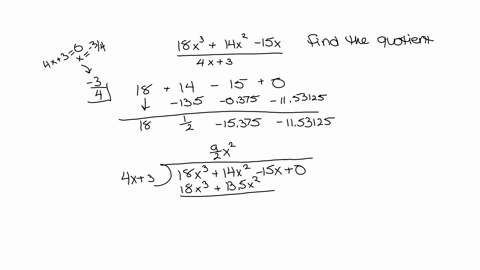 4x+3=0 x=-3/4
18x³ + 14x² -15x find the quotient
4x+3
-3/4 18 + 14 - 15 + 0
↓ -13.5 -0.375 -11.53125
18 1/2 -15.375 -11.53125
9/2 x²
4x+3 ) 18x³ + 14x² -15x + 0
18x³ + 13.5x²